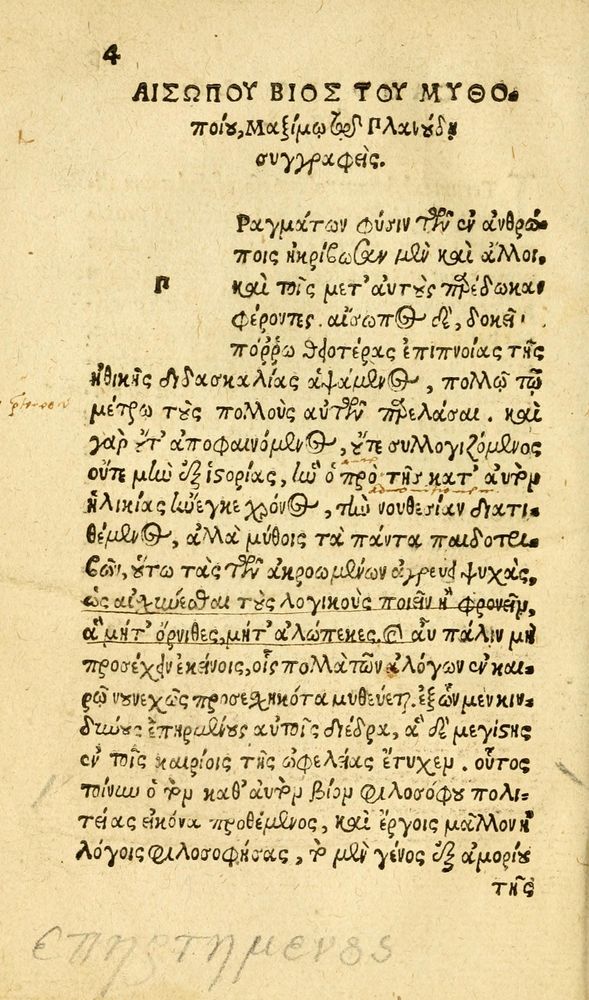 4
ΑΙΣΩΠΟΥ ΒΙΟΣ ΤΟΥ ΜΥΘΟ-
ποιοῦ, Μαξίμῳ τῷ Πλανούδῃ
συγγραφείς.
Πραγμάτων φύσιν τῶν ἐν ἀνθρώ-
ποις ἠκρίβωσαν μὲν καὶ ἄλλοι,
καὶ τοῖς μετ' αὐτοὺς παρέδωκαν
φέροντες. αἴσωπος δὲ, δοκεῖ
πόρρω θειοτέρας ἐπιπνοίας τῆς
ἠθικῆς διδασκαλίας ἁψάμενος, πολλῷ τῷ
μέτρῳ τοὺς πολλοὺς αὐτῶν παρελάσαι. καὶ
γὰρ οὔτ' ἀποφαινόμενος, οὔτε συλλογιζόμενος
οὔτε μὴν ἐξ ἱστορίας, ἣν ὁ πρὸ τῆς κατ' αὐτὸν
ἡλικίας ἤνεγκε χρόνος, τὴν νουθεσίαν διατι-
θέμενος, ἀλλὰ μύθοις τὰ πάντα παιδοτρι-
βῶν, οὕτω τὰς τῶν ἀκροωμένων ἀγρεύει ψυχάς,
ὡς αἰσχύνεσθαι τοὺς λογικοὺς ποιεῖν ἢ φρονεῖν,
ἃ μήτ' ὄρνιθες, μήτ' ἀλώπεκες. καὶ αὖ πάλιν μὴ
προσέχειν ἐκείνοις, οἷς πολλὰ τῶν ἀλόγων ἐν και-
ρῷ νουνεχῶς προσεσχηκότα μυθεύεται. ἐξ ὧν μὲν κιν-
δύνους ἐπηρμένους αὐτοῖς διέδρα, ἃ δὲ μεγίστης
ἐν τοῖς καιρίοις τῆς ὠφελείας ἔτυχεν. οὗτος
τοίνυν ὁ τὸν καθ' αὑτὸν βίον φιλοσόφου πολι-
τείας εἰκόνα προθέμενος, καὶ ἔργοις μᾶλλον ἢ
λόγοις φιλοσοφήσας, τὸ μὲν γένος ἐξ ἀμορίου
τῆς
επηστημενος